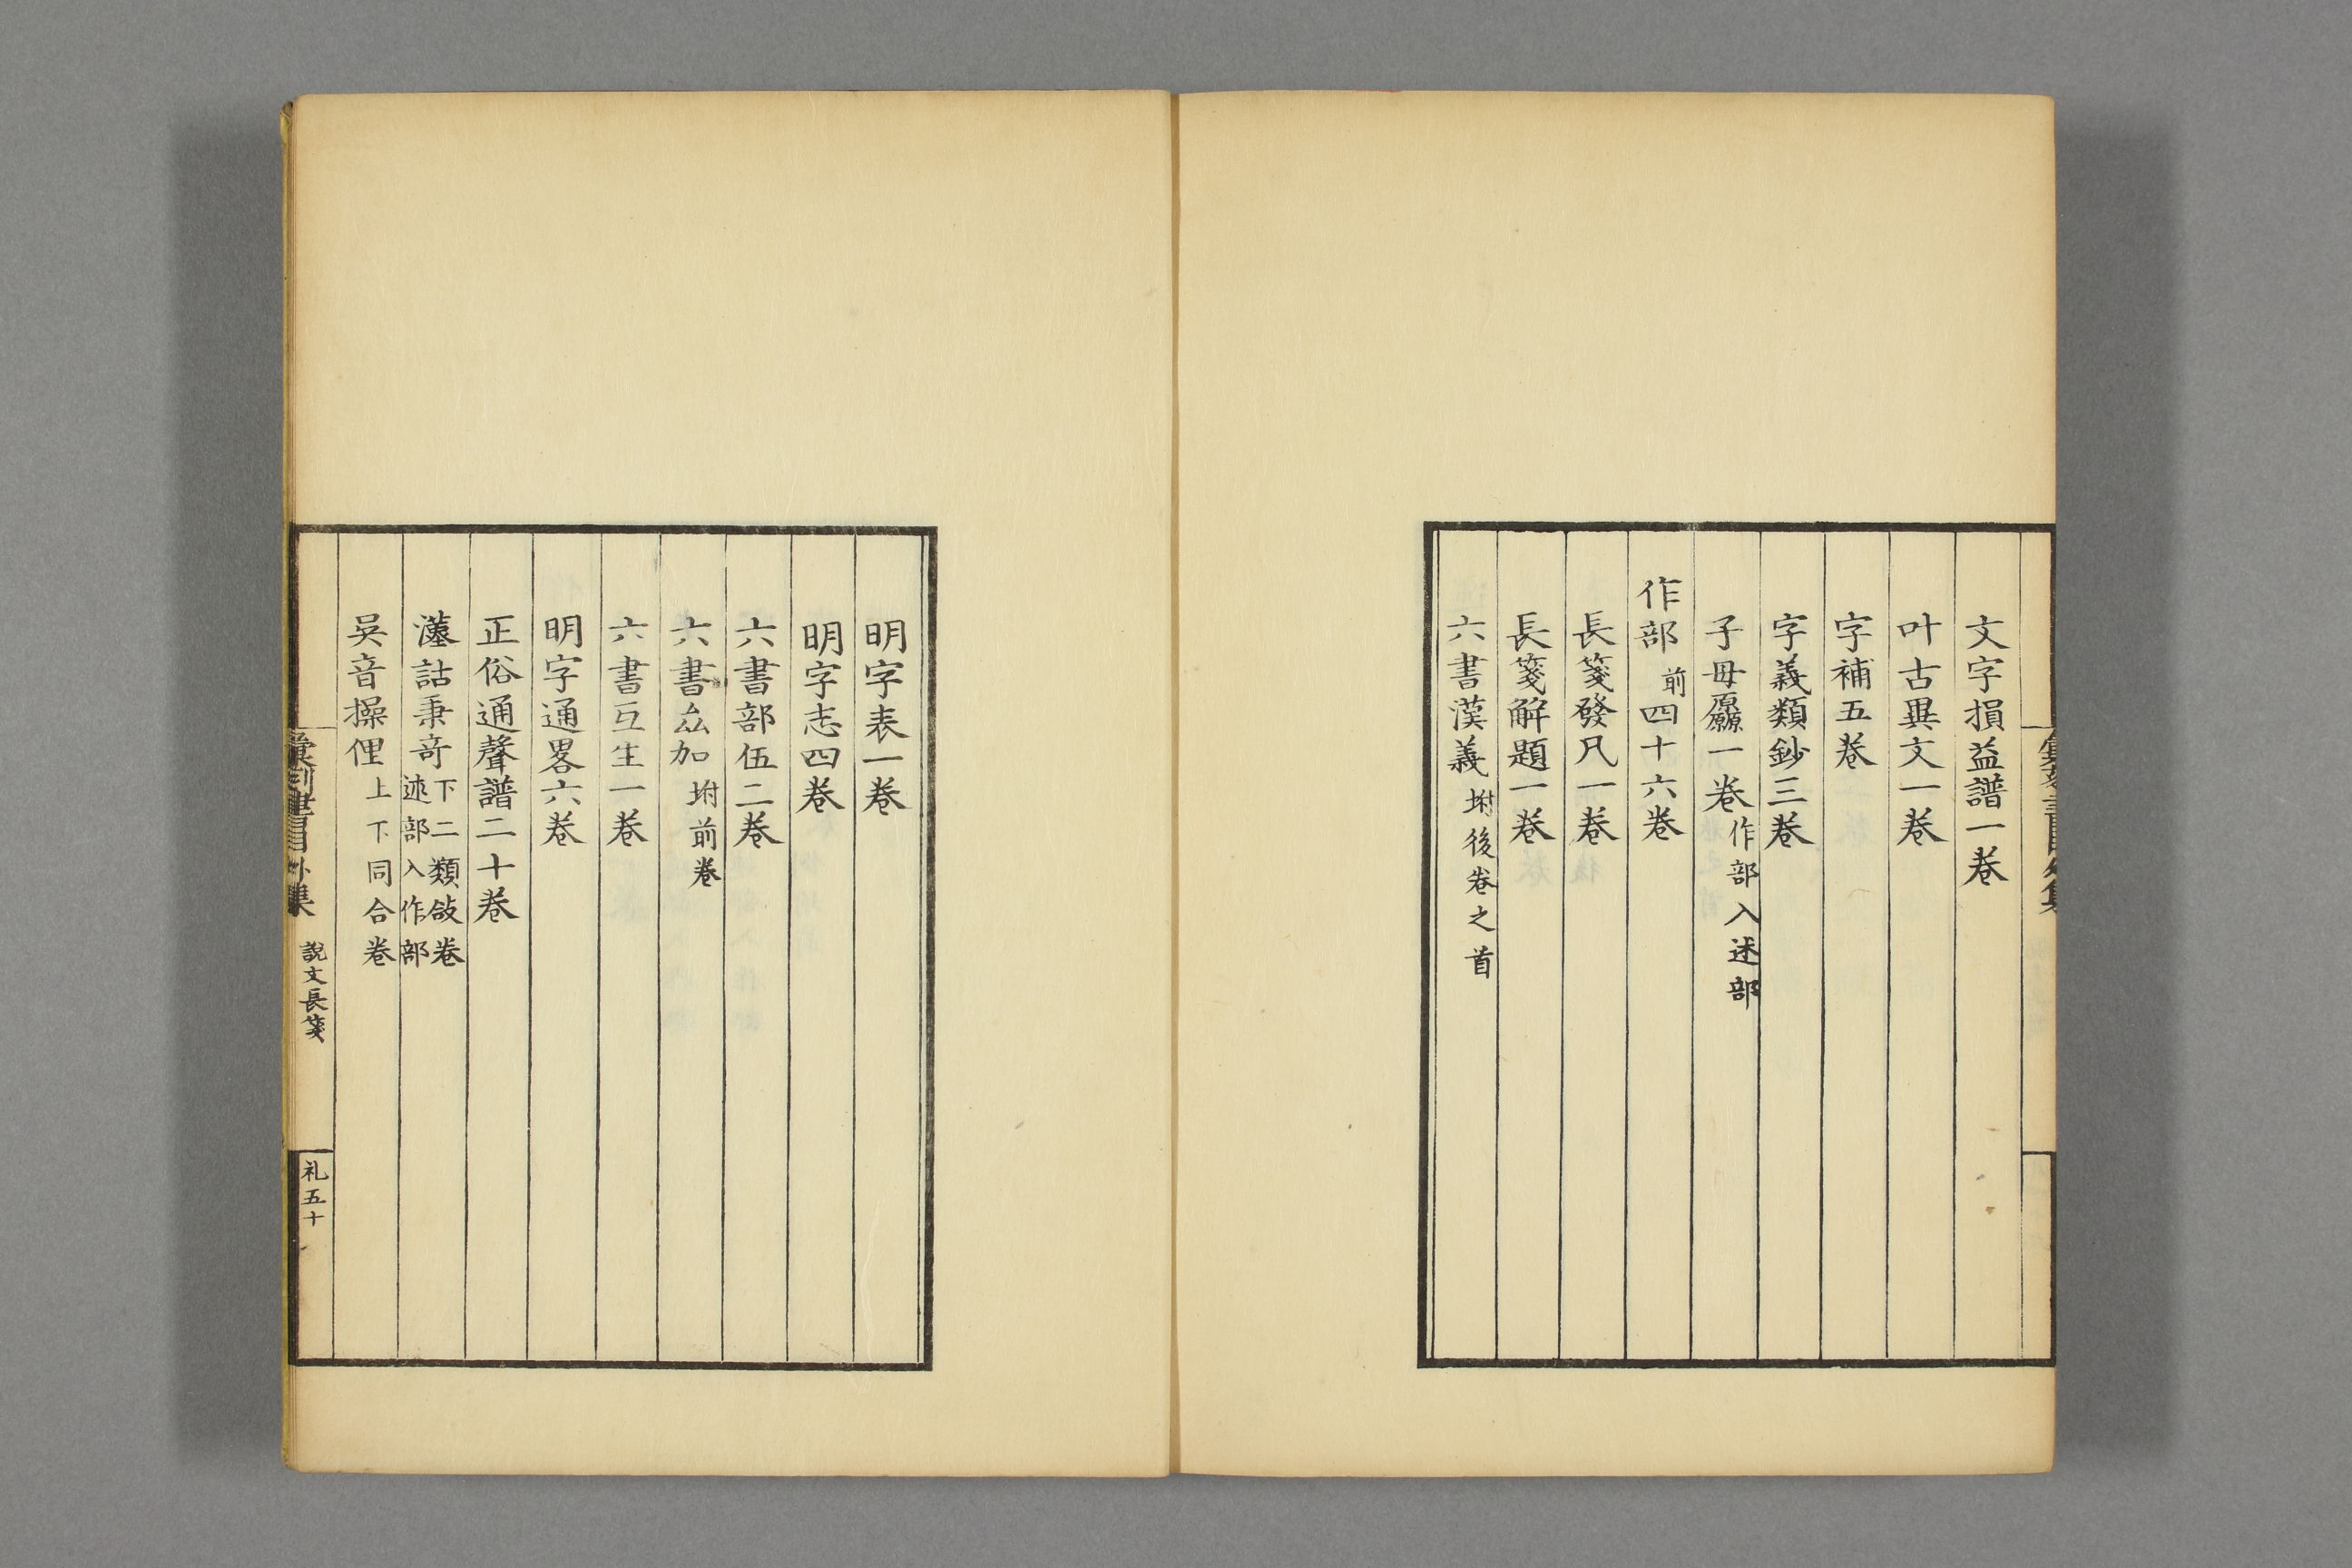 文字損益譜一卷
叶古異文一卷
字補五卷
字義類鈔三卷
子母厵一卷作部入述部
作部前四十六卷
長箋發凡一卷
長箋解題一卷
六書漢義坿後卷之首
明字表一卷
明字志四卷
六書部伍二卷
六書厽加坿前卷
六書互生一卷
明字通畧六卷
正俗通聲譜二十卷
詁秉竒下二類敆卷
述部入作部
吳音操俚上下同合卷
彙刻書目外集 說文長箋 礼五十